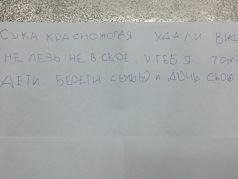 СУКА КРАСНОЖОПАЯ УДАЛИ
НЕ ЛЕЗЬ НЕ В СВОЕ. У ТЕБЯ
ДЕТИ. БЕРЕГИ СЕМЬЮ И ДОЧЬ СВОЮ